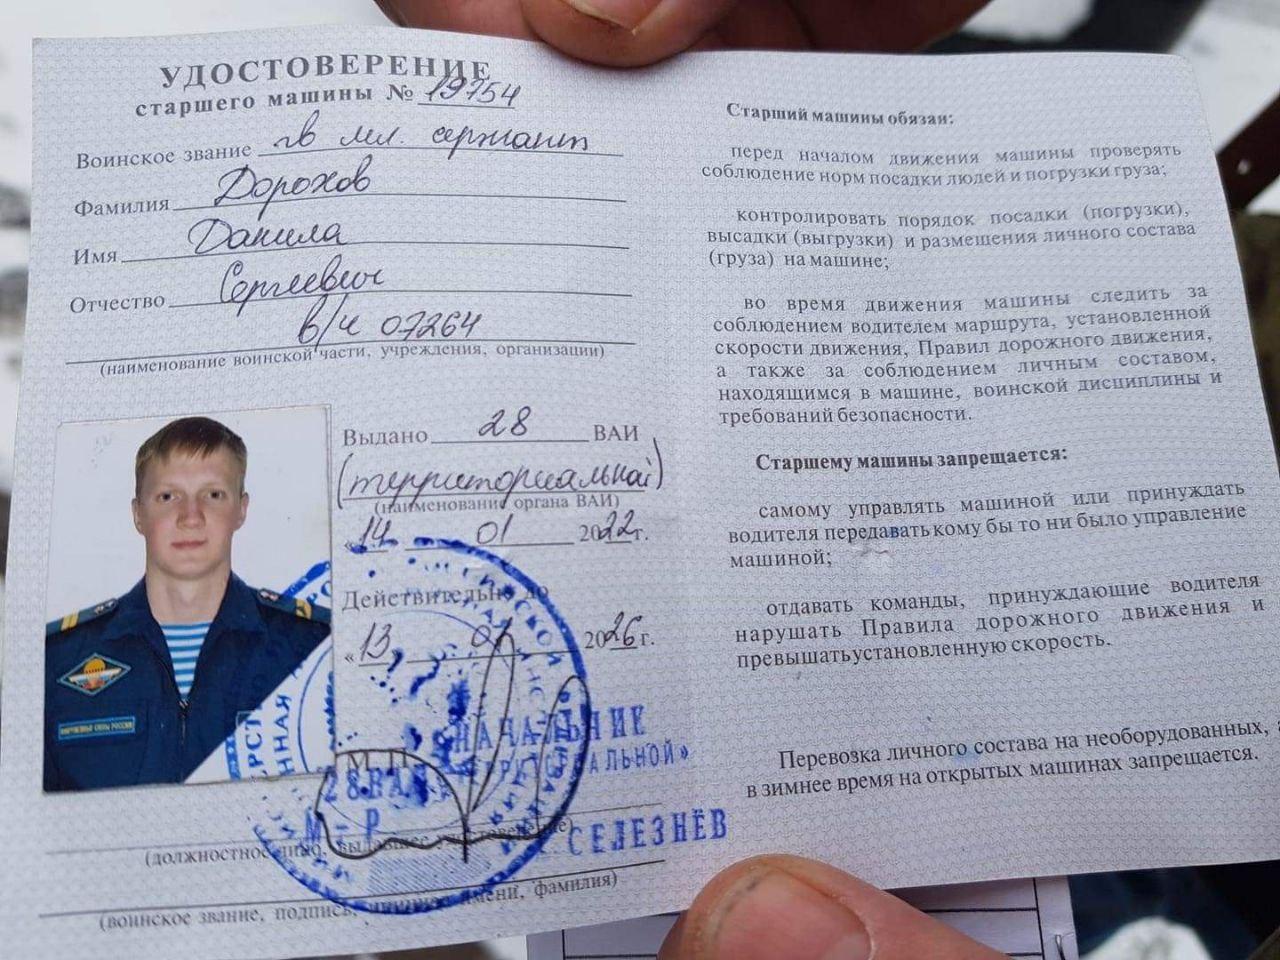 УДОСТОВЕРЕНИЕ
старшего машины № 19754
Воинское звание гв мл. сержант
Фамилия Дорохов
Имя Данила
Отчество Сергеевич
в/ч 07264
(наименование воинской части, учреждения, организации)
Выдано 28 ВАИ
(территориальной)
(наименование органа ВАИ)
«14 01 2022г.
Действительно до
«13, 01 2026г.
НАЧАЛЬНИК
28 ВАИ
М-Р
СЕЛЕЗНЁВ
М.П.
(должностное лицо, выдавшее удостоверение)
(воинское звание, подпись, инициал имени, фамилия)
ВООРУЖЕННЫЕ СИЛЫ РОССИИ
Старший машины обязан:
перед началом движения машины проверять
соблюдение норм посадки людей и погрузки груза;
контролировать порядок посадки (погрузки),
высадки (выгрузки) и размещения личного состава
(груза) на машине;
во время движения машины следить за
соблюдением водителем маршрута, установленной
скорости движения, Правил дорожного движения,
а также за соблюдением личным составом,
находящимся в машине, воинской дисциплины и
требований безопасности.
Старшему машины запрещается:
самому управлять машиной или принуждать
водителя передавать кому бы то ни было управление
машиной;
отдавать команды, принуждающие водителя
нарушать Правила дорожного движения и
превышатьустановленную скорость.
Перевозка личного состава на необорудованных,
в зимнее время на открытых машинах запрещается.